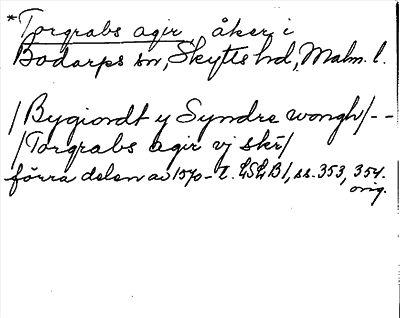 *Torgrabs agir, åker i
Bodarps sn, Skytts hd, Malm. l.
/Bygiordt y Syndre wongh/--
/Torgrabs agir vj skr/
förra delen av 1570-t. LSLB1, ss. 353, 354.
orig.